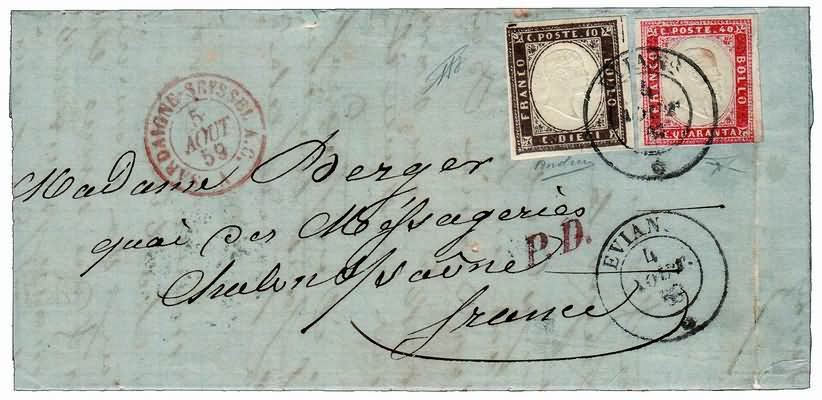 C. POSTE. 10
FRANCO
BOLLO
C. DIECI
C. POSTE. 40
FRANCO
BOLLO
C. QUARANTA
EVIAN.
4
AOUT
SARDAIGNE-SEYSSEL A.C.
5
AOUT
59
Madame Berger
quai des Messageries
P.D.
Chalon s/saône
france
EVIAN.
4
AOUT.
59
6